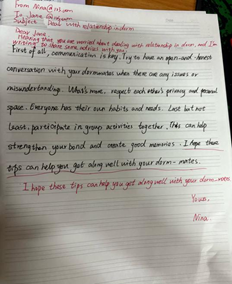 From Nina@
To Jane @
Subject: Deal with relationship in dorm
Dear Jane
Hearing that you are worried about dealing with relationship in dorm, and I'm
writing to share some advice with you.
First of all, communication is key. Try to have an open and honest
conversation with your dormmates when there are any issues or
misunderstandings. What's more, respect each other's privacy and personal
space. Everyone has their own habits and needs. Last but not
least, participate in group activities together. This can help
strengthen your bond and create good memories. I hope these
tips can help you get along well with your dorm-mates.
I hope these tips can help you get along well with your dorm-mates.
Yours,
Nina